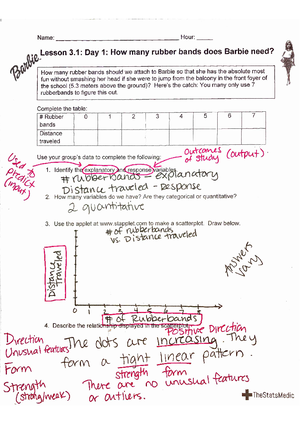 Name: Hour:
Barbie
Lesson 3.1: Day 1: How many rubber bands does Barbie need?
How many rubber bands should we attach to Barbie so that she has the absolute most
fun without smashing her head if she were to jump from the balcony in the front foyer of
the school (5.3 meters above the ground)? Here's the catch: You may only use 7
rubberbands to figure this out.
Complete the table:
# Rubber bands 0 1 2 3 4 5 6 7
Distance traveled
Use your group's data to complete the following:
outcomes of study (output)
Used to predict (input)
1. Identify the explanatory and response variables.
# rubberbands = explanatory
Distance traveled = Response
2. How many variables do we have? Are they categorical or quantitative?
2 quantitative
3. Use the applet at www.stapplet.com to make a scatterplot. Draw below.
# of rubberbands
vs. Distance traveled
Distance traveled
Answers vary
1 2 3 4 5 6 7 8
# of Rubberbands
4. Describe the relationship displayed in the scatterplot.
Positive Direction
Direction
Unusual features
Form
Strength
(strong/weak)
The dots are increasing. They
form a tight linear pattern.
strength form
There are no unusual features
or outliers.
TheStatsMedic